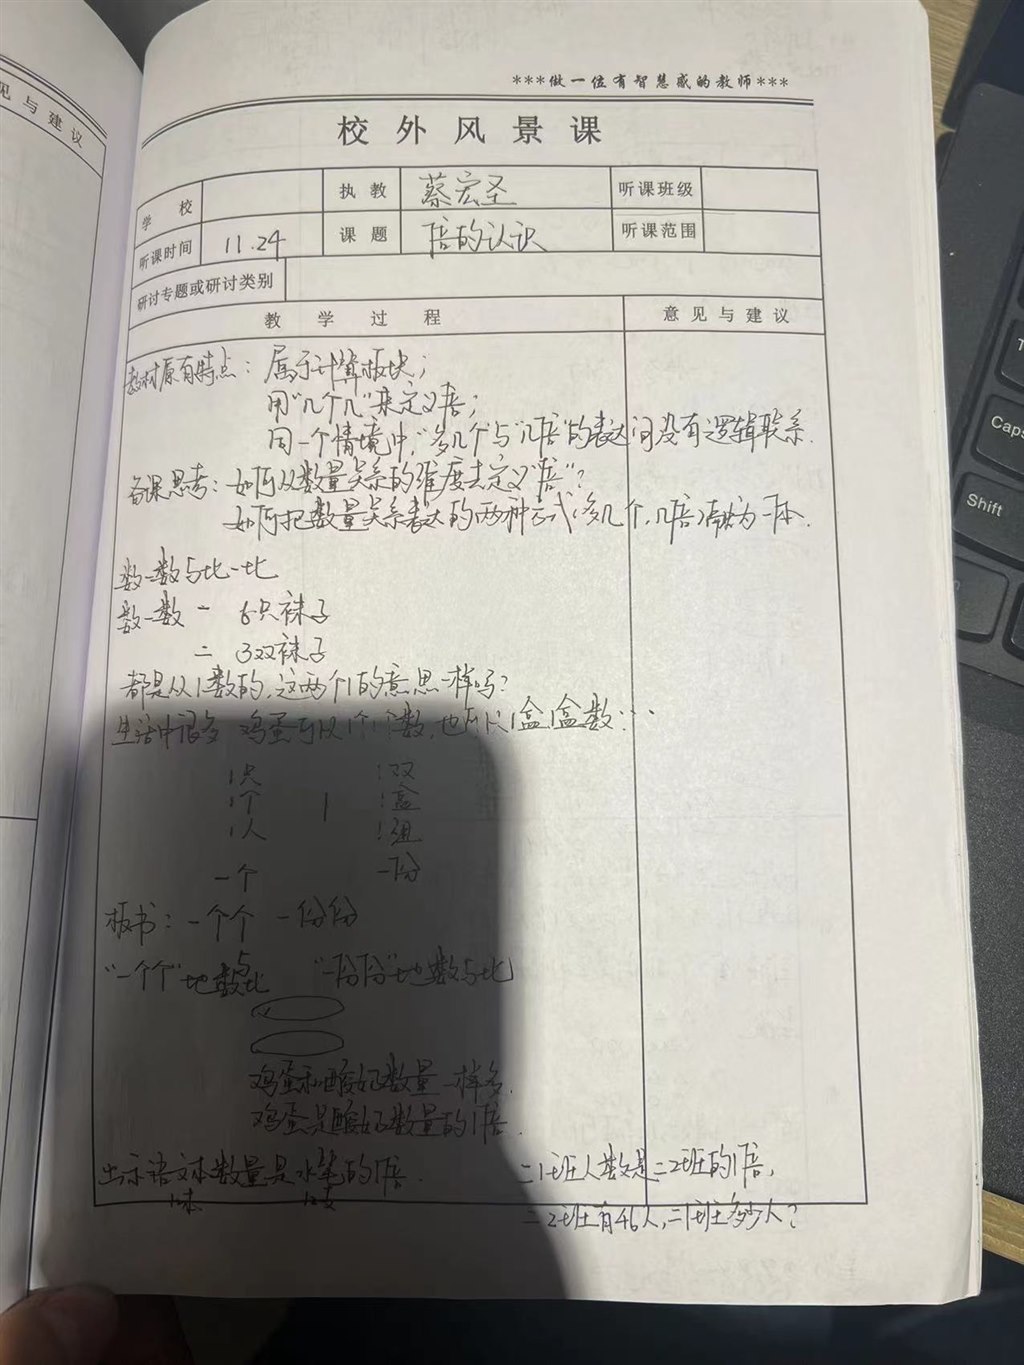 见与建议
***做一位有智慧感的教师***
校外风景课
学校 执教 蔡宏圣 听课班级
听课时间 11.24 课题 倍的认识 听课范围
研讨专题或研讨类别
教学过程 意见与建议
教材原有特点：属于计算板块；
用“几个几”来定义倍；
同一个情境中，“多几个”与“几倍”的表达间没有逻辑联系.
备课思考：如何从数量关系的维度去定义“倍”？
如何把数量关系表达的两种方式（多几个，几倍）融为一体.
数一数与比一比
数一数 一 6只袜子
二 3双袜子
都是从1数的，这两个1的意思一样吗？
生活中很多 鸡蛋可以1个1个数，也可以1盒1盒数…
1只 1双
1个 1 1盒
1人 1组
一个 一份
板书：一个个 一份份
“一个个”地数与比 “一份份”地数与比
鸡蛋和酸奶数量一样多.
鸡蛋是酸奶数量的1倍.
出示语文本数量是水笔的1倍. 二1班人数是二2班的1倍，
12本 12支 二2班有46人，二1班多少人？
Caps
Shift